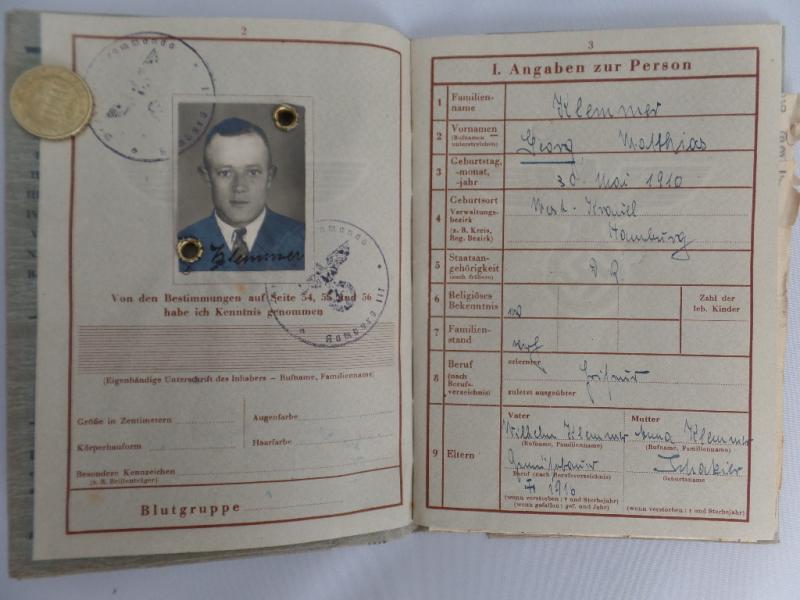 2
Klemmer
Von den Bestimmungen auf Seite 54, 55 und 56
habe ich Kenntnis genommen
(Eigenhändige Unterschrift des Inhabers – Rufname, Familienname)
Größe in Zentimetern
Augenfarbe
Körperbauform
Haarfarbe
Besondere Kennzeichen
(z. B. Brillenträger)
Blutgruppe
3
I. Angaben zur Person
1 Familien-
name
Klemmer
2 Vornamen
(Rufnamen
unterstreichen)
Georg Matthias
3 Geburtstag,
-monat,
-jahr
30. Mai 1910
4 Geburtsort
Verwaltungs-
bezirk
(z. B. Kreis,
Reg. Bezirk)
Hamburg
5 Staatsan-
gehörigkeit
(auch frühere)
D. R.
6 Religiöses
Bekenntnis
Zahl der
leb. Kinder
7 Familien-
stand
8 Beruf
(nach
Berufs-
verzeichnis)
erlernter
zuletzt ausgeübter
9 Eltern
Vater
Wilhelm Klemmer
(Rufname, Familienname)
Beruf (nach Berufsverzeichnis)
1916
(wenn verstorben: † und Sterbejahr)
(wenn gefallen: gef. und Jahr)
Mutter
Anna Klemmer
(Rufname, Familienname)
Geburtsname
(wenn verstorben: † und Sterbejahr)